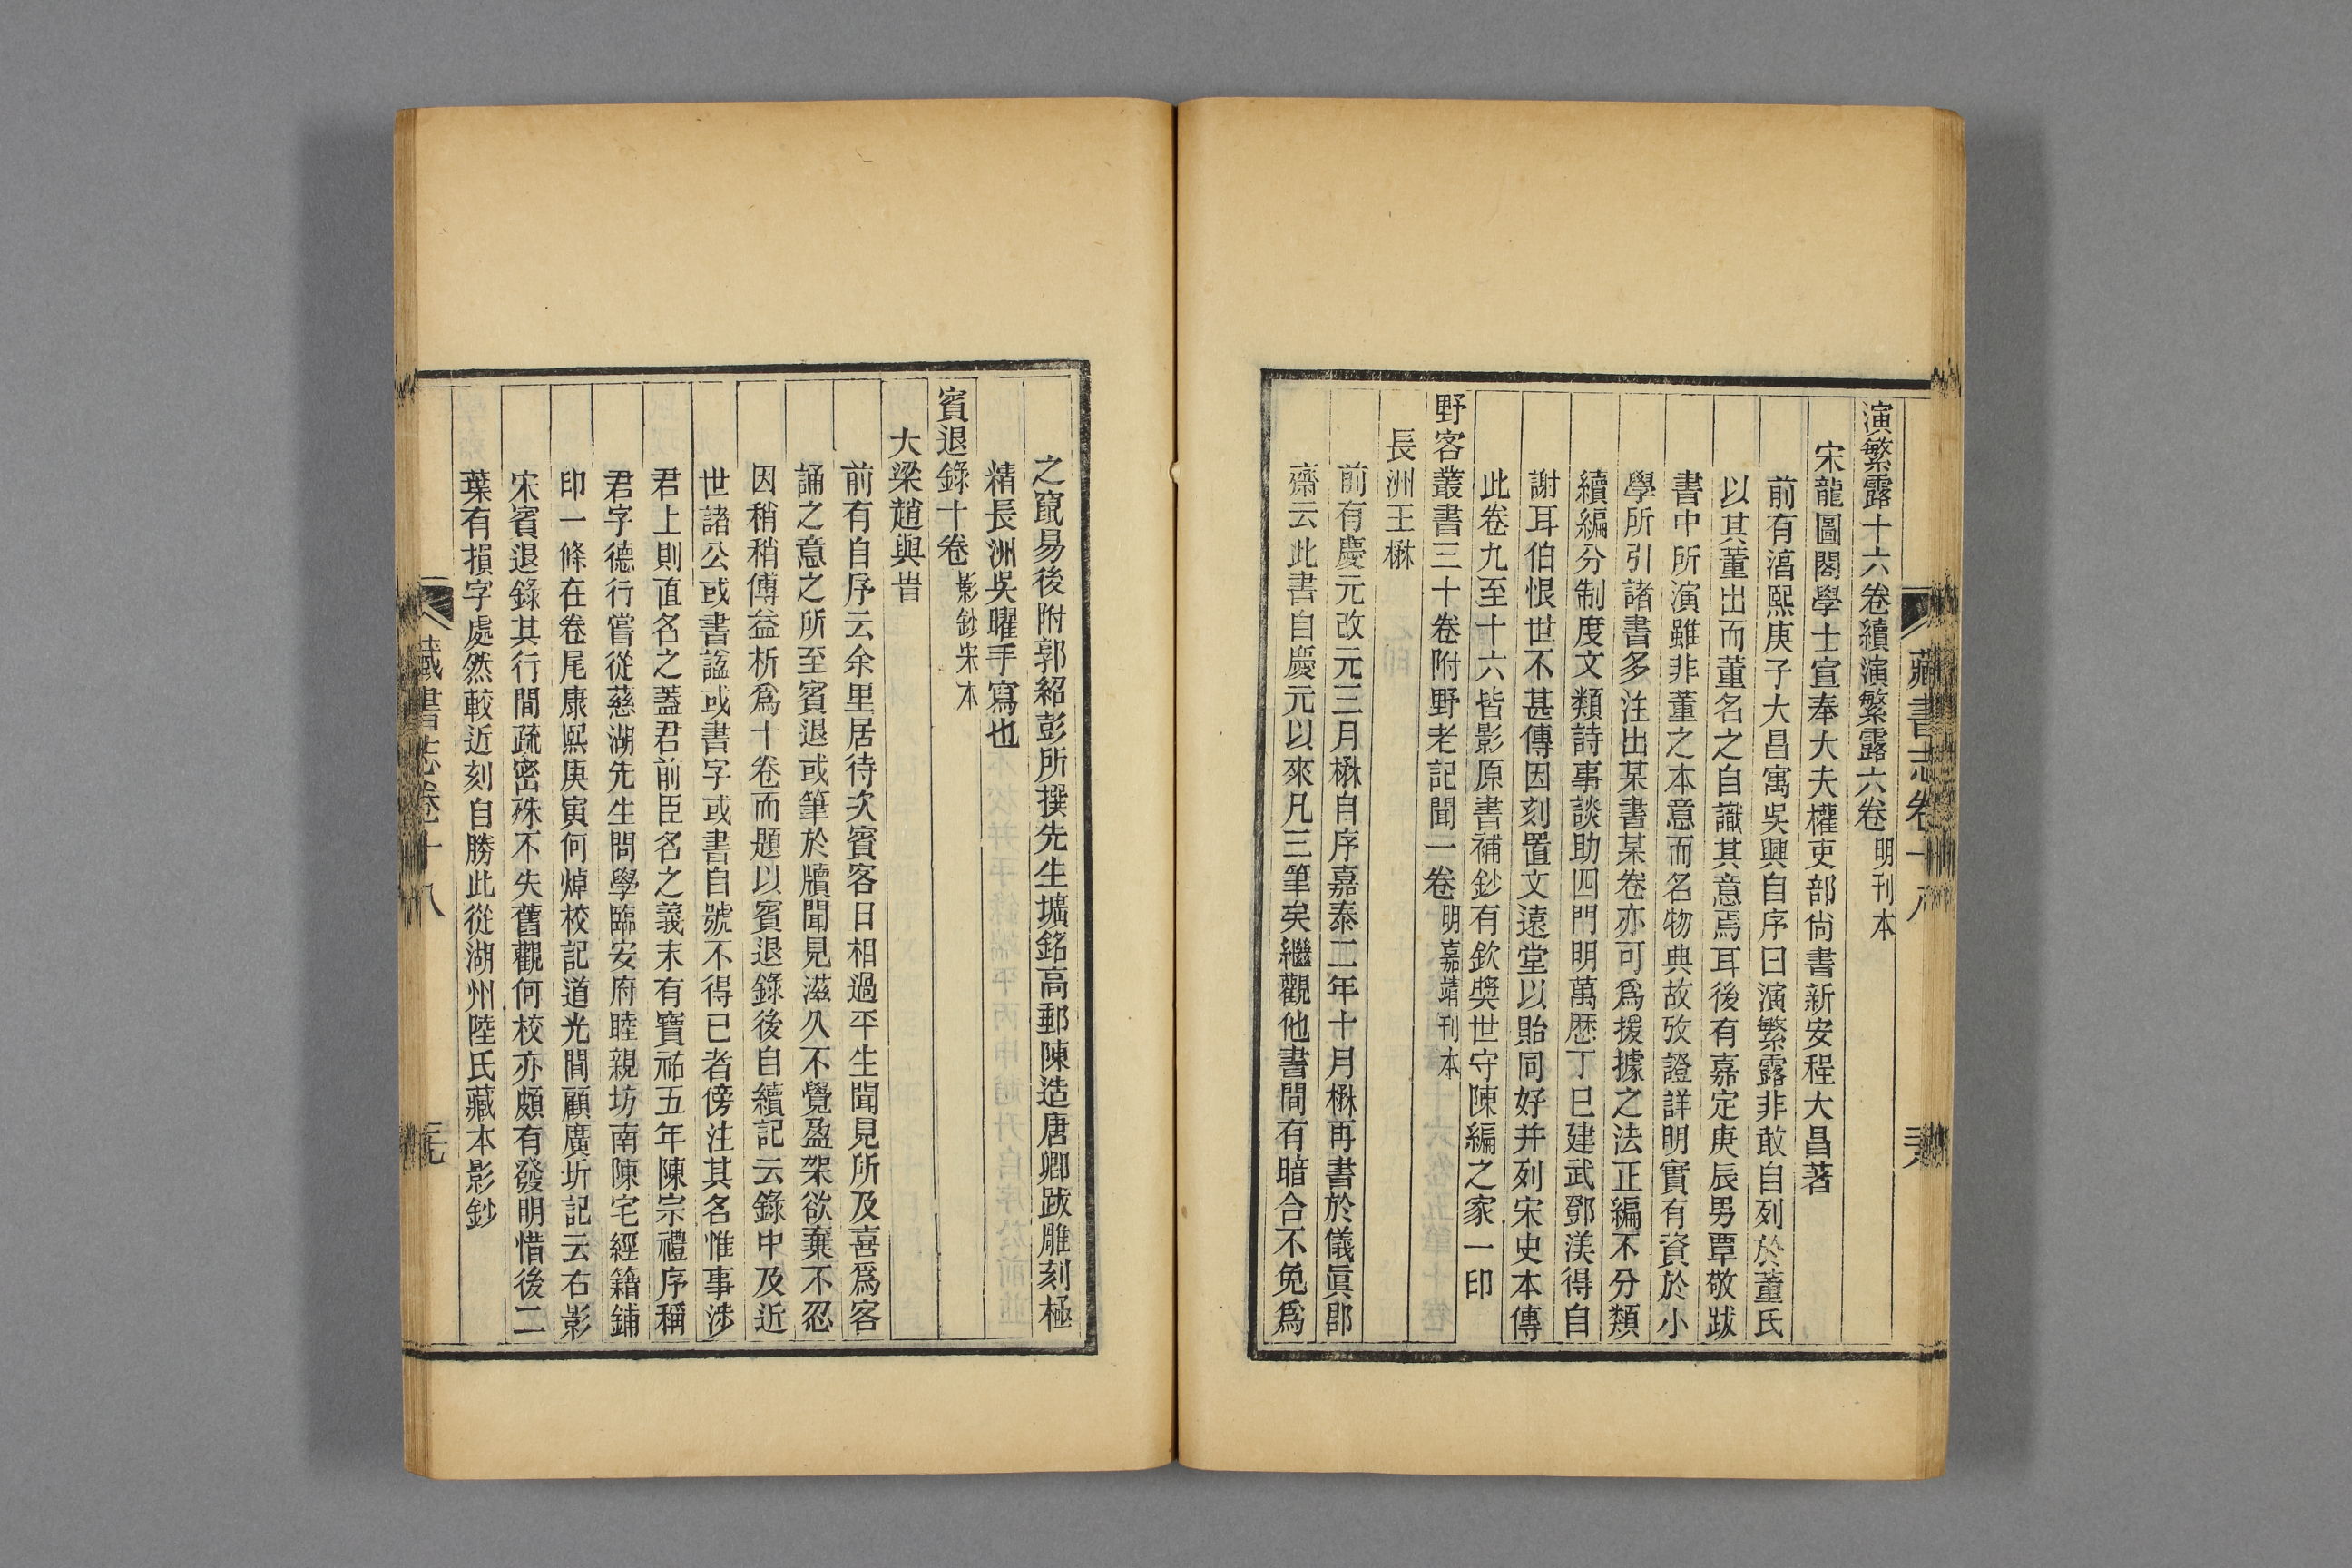 藏書志卷十八
演繁露十六卷續演繁露六卷明刊本
宋龍圖閣學士宣奉大夫權吏部尙書新安程大昌著
前有湻熙庚子大昌寓吳興自序曰演繁露非敢自列於董氏
以其董出而董名之自識其意焉耳後有嘉定庚辰男覃敬跋
書中所演雖非董之本意而名物典故攷證詳明實有資於小
學所引諸書多注出某書某卷亦可爲援據之法正編不分類
續編分制度文類詩事談助四門明萬歷丁巳建武鄧渼得自
謝耳伯恨世不甚傳因刻置文遠堂以貽同好并列宋史本傳
此卷九至十六皆影原書補鈔有欽奬世守陳編之家一印
野客叢書三十卷附野老記聞一卷明嘉靖刊本
長洲王楙
前有慶元改元三月楙自序嘉泰二年十月楙再書於儀眞郡
齋云此書自慶元以來凡三筆矣繼觀他書間有暗合不免爲
之竄易後附郭紹彭所撰先生壙銘高郵陳造唐卿跋雕刻極
精長洲吳曜手寫也
賓退錄十卷影鈔宋本
大梁趙與旹
前有自序云余里居待次賓客日相過平生聞見所及喜爲客
誦之意之所至賓退或筆於牘聞見滋久不覺盈架欲棄不忍
因稍稍傅益析爲十卷而題以賓退錄後自續記云錄中及近
世諸公或書諡或書字或書自號不得已者傍注其名惟事涉
君上則直名之蓋君前臣名之義末有寶祐五年陳宗禮序稱
君字德行嘗從慈湖先生問學臨安府睦親坊南陳宅經籍鋪
印一條在卷尾康熙庚寅何焯校記道光間顧廣圻記云右影
宋賓退錄其行間疏密殊不失舊觀何校亦頗有發明惜後二
葉有損字處然較近刻自勝此從湖州陸氏藏本影鈔
藏書志卷十八